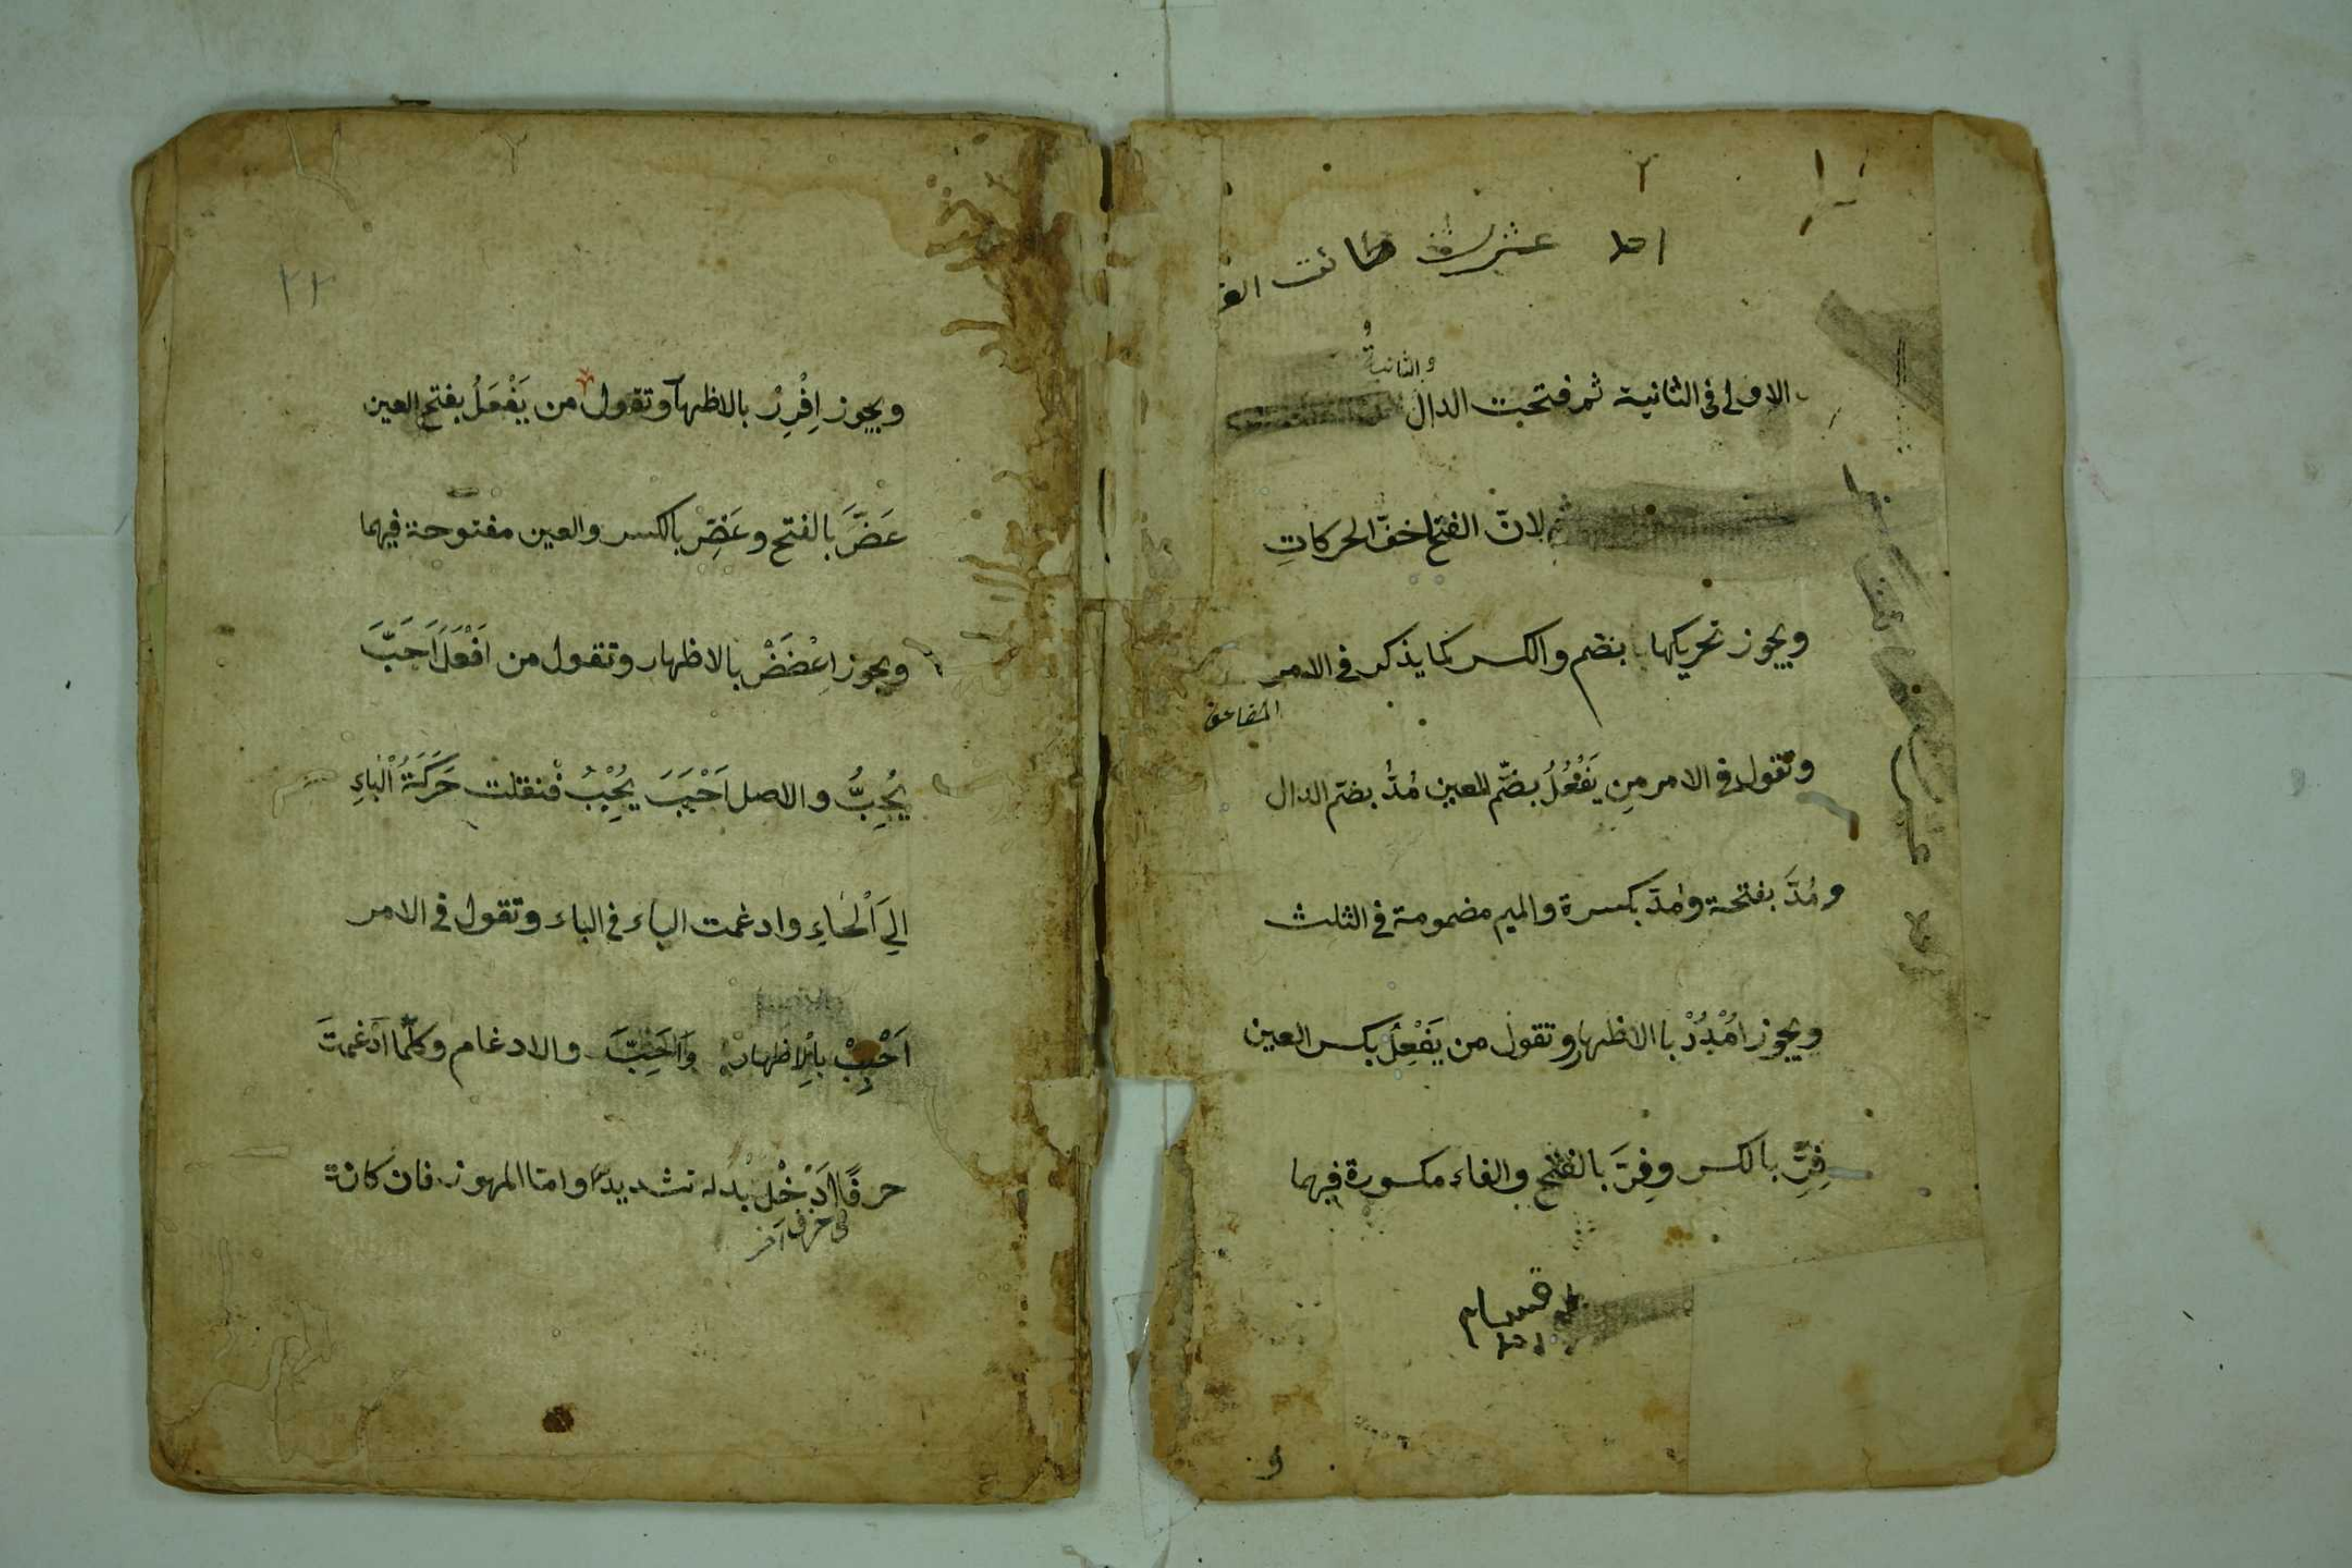 الاولى فى الثانية ثم فتحت الدال
والثانية
لانّ الفتح اخفّ الحركاتِ
ويجوز تحريكها بضم والكسر كما يذكر فى الامر
وتقول فى الامر مِن يَفْعُلُ بضّم العين مُدُّ بضم الدال
ومُدَّ بفتحة ومُدِّ بكسرة والميم مضمومة فى الثلث
ويجوز اُمْدُدْ باالاظهار وتقول من يَفْعِلُ بكسر العين
فِرِّ بالكسر وفِرَّ بالفتح والفاء مكسورة فيهما
ويجوز اِفْرِرْ بالاظهار وتقول من يَفْعَلُ بفتح العين
عَضَّ بالفتح وعَضِّ بالكسر والعين مفتوحة فيهما
ويجوز اِعْضَضْ بالاظهار وتقول من اَفْعَلَ اَحَبَّ
يُحِبُّ والاصل اَحْبَبَ يُحْبِبُ فنقلت حَرَكَةُ الْبَاءِ
اِلَى الْحَاءِ وادغمت الباء فى الباء وتقول فى الامر
اَحْبِبْ بالاِظهار وَاَحِبَّ والادغام وكلّما اَدْغمتَ
حرفًا اَدْخِلْ بدله تشديدًا وامّا المهموز فان كانة
فى حرف آخر